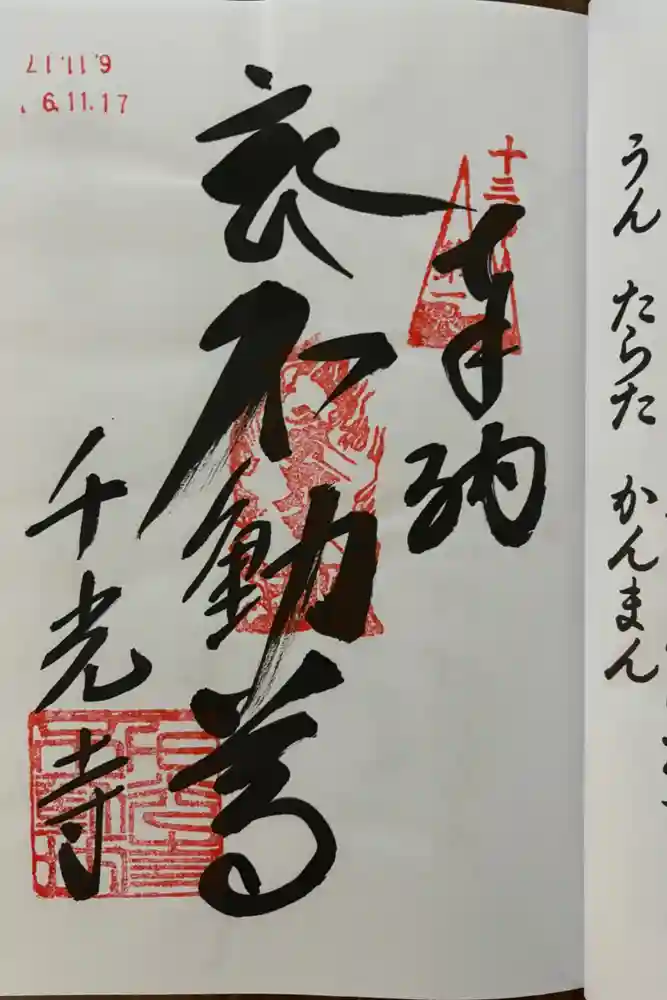 うん たらた かんまん
十三
第一
奉納
不動尊
千光寺
6.11.17
6.11.17